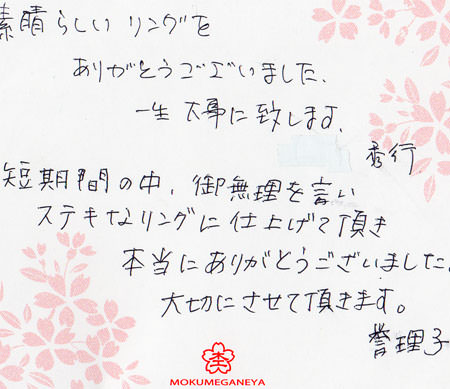 素晴らしいリングを
ありがとうございました.
一生大事に致します.
秀行
短期間の中、御無理を言い
ステキなリングに仕上げて頂き
本当にありがとうございました。
大切にさせて頂きます。
誉理子
MOKUMEGANEYA